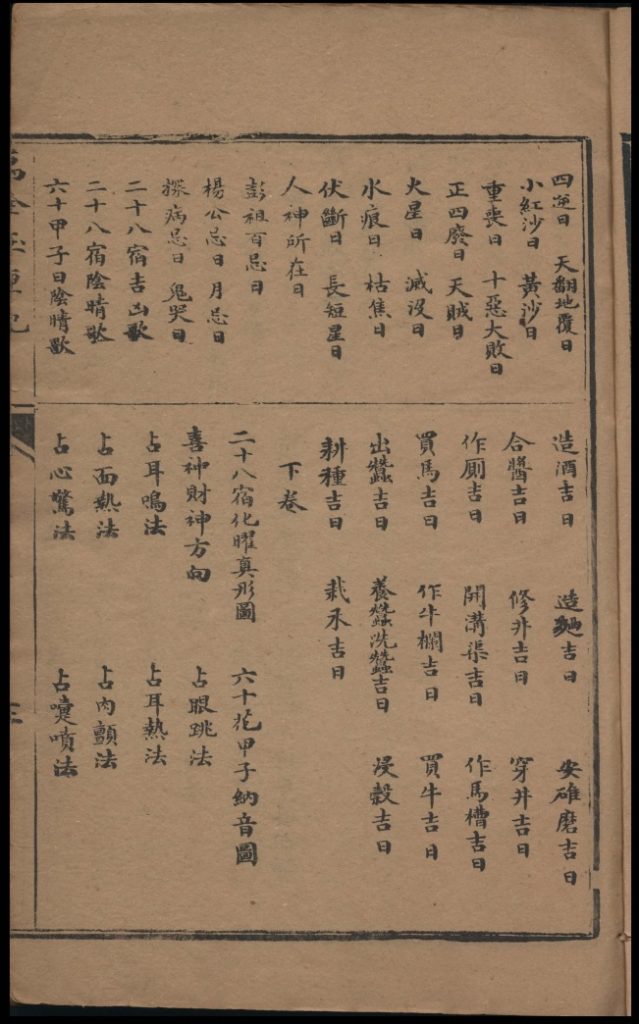 四逆日 天翻地覆日
小紅沙日 黃沙日
重喪日 十惡大敗日
正四廢日 天賊日
火星日 滅沒日
水痕日 枯焦日
伏斷日 長短星日
人神所在日
彭祖百忌日
楊公忌日 月忌日
探病忌日 鬼哭日
二十八宿吉凶歌
二十八宿陰晴歌
六十甲子日陰晴歌
造酒吉日 造麯吉日 安碓磨吉日
合醬吉日 修井吉日 穿井吉日
作厠吉日 開溝渠吉日 作馬槽吉日
買馬吉日 作牛欄吉日 買牛吉日
出蠶吉日 養蠶洗蠶吉日 浸穀吉日
耕種吉日 栽禾吉日
下卷
二十八宿化曜真形圖 六十花甲子納音圖
喜神財神方向 占眼跳法
占耳鳴法 占耳熱法
占面熱法 占肉顫法
占心驚法 占嚏噴法
三